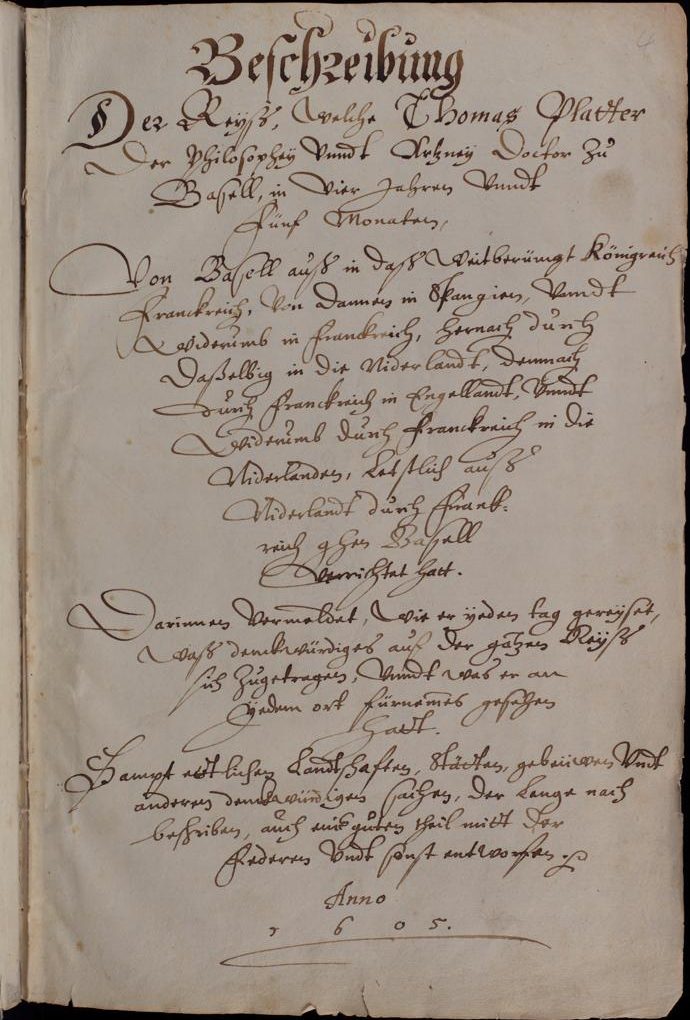 Beschreibung
Der Reyß, welche Thomas Platter
Der Philosophey vnndt Artzney Doctor zu
Basell, in vier Jahren vnndt
fünf Monaten,
Von Basell auß in daß weitberümpt Königreich
Franckreich, von dannen in Spangien, vnndt
widerumb in Franckreich, hernach durch
daßelbig in die Niderlandt, demnach
durch Franckreich in Engellandt, vnndt
widerumb durch Franckreich in die
Niderlanden, letstlich auß
Niderlandt durch Franck-
reich ghen Basell
verrichtet hatt.
Darinnen vermeldet, wie er yeden tag gereyset,
waß denckwürdiges auf der gantzen Reyß
sich zugetragen, vnndt was er an
yedem ort fürnemes gesehen
hatt.
Sampt ettlichen Landtschaften, Stätten, gebeüwen vndt
anderen denckwürdigen sachen, der lenge nach
beschriben, auch guten theil mitt der
Federen vndt sonst entworfen.
Anno
1605.